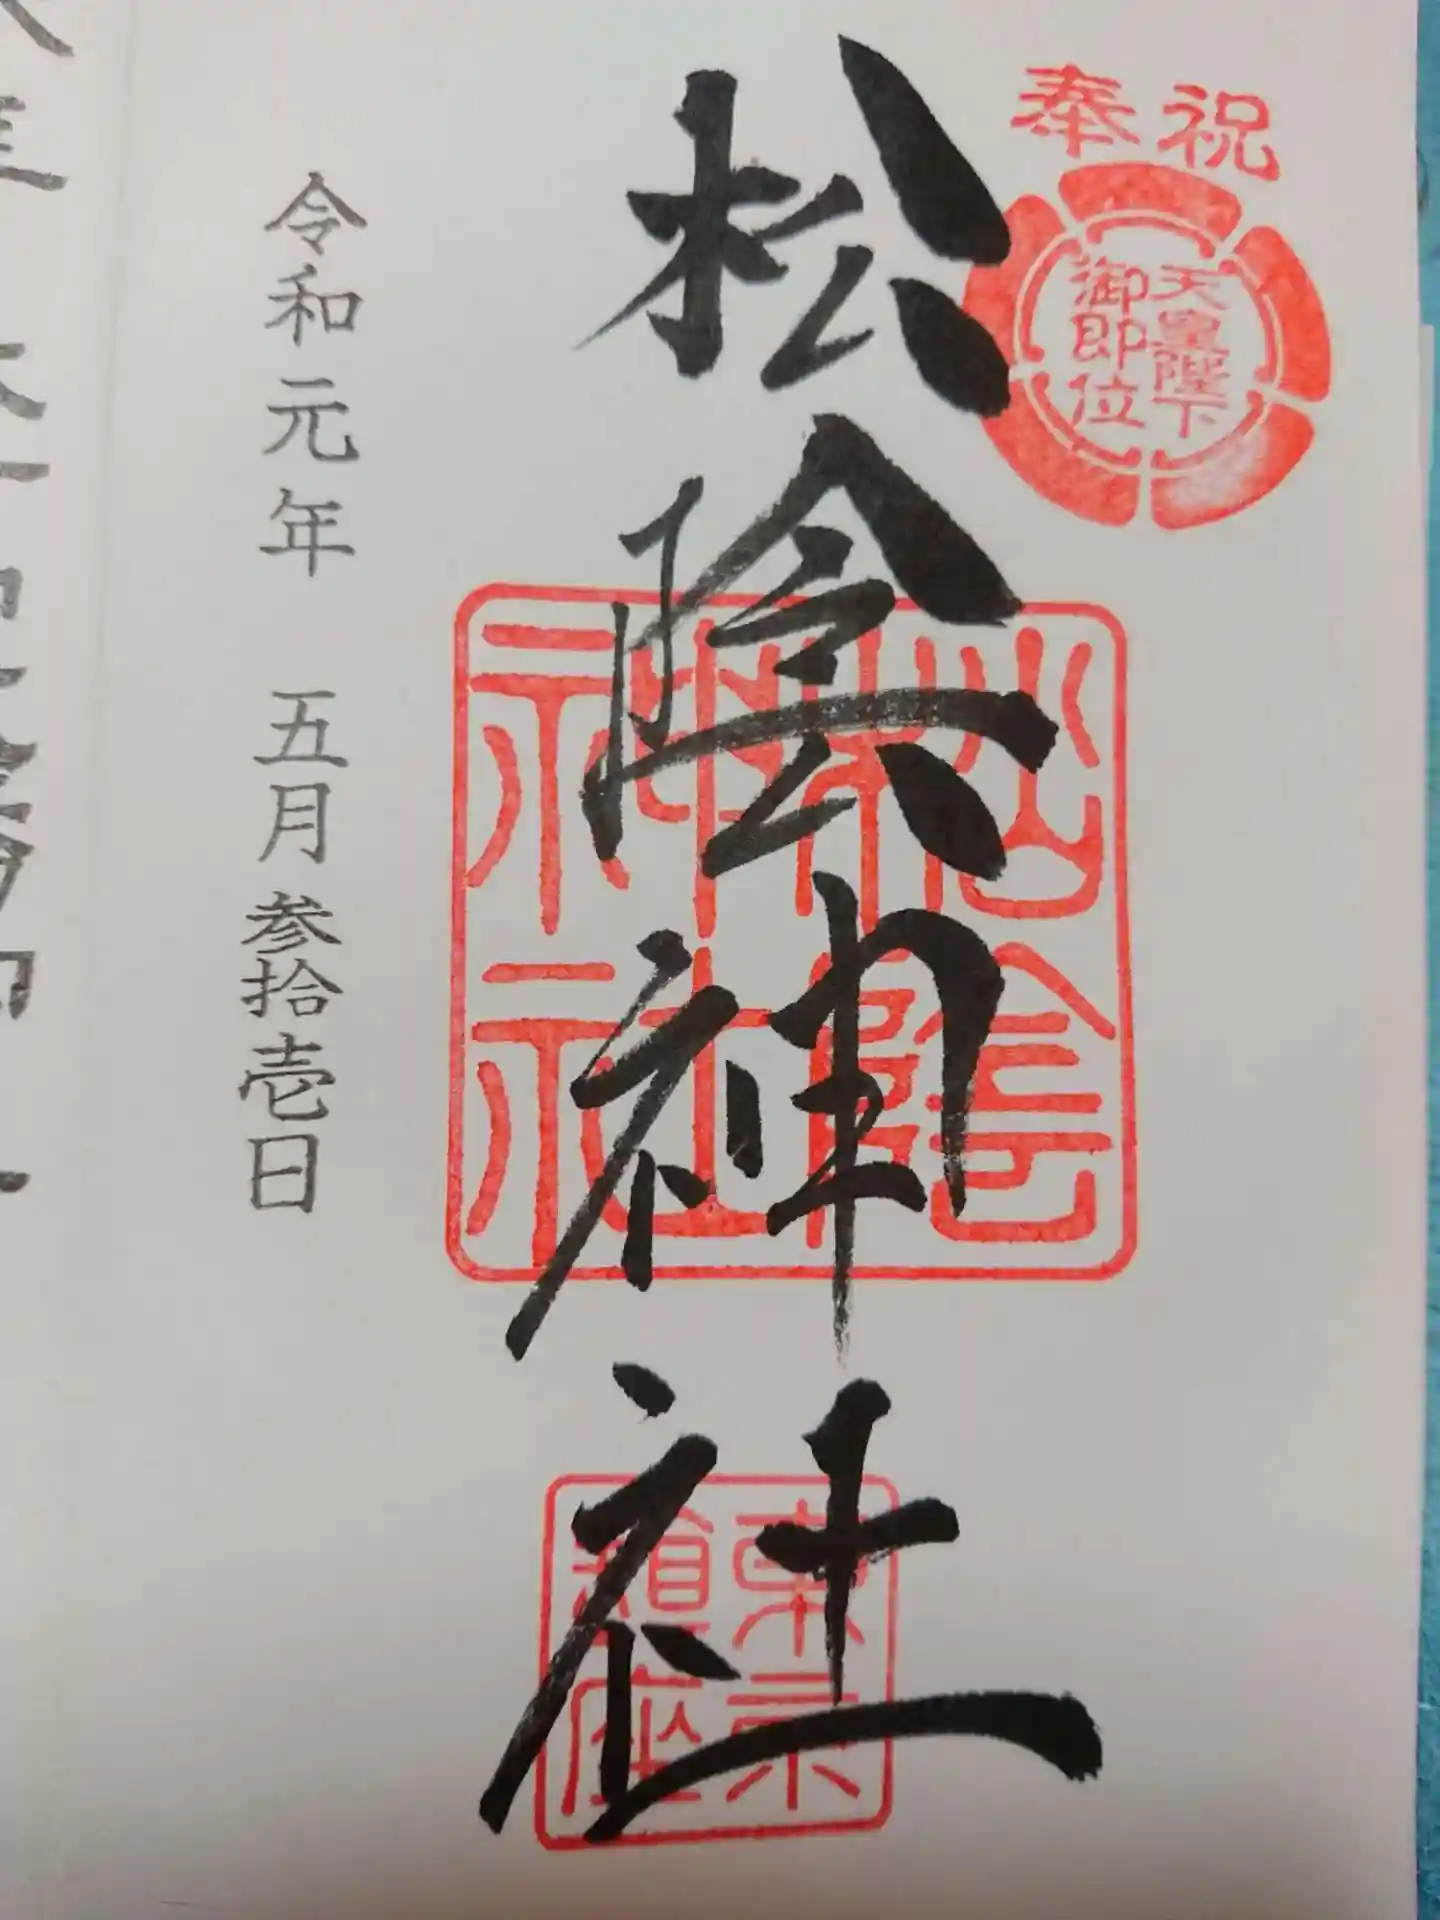 奉祝
天皇陛下
御即位
松陰神社
松陰
神社
東京
鎮座
令和元年 五月参拾壱日